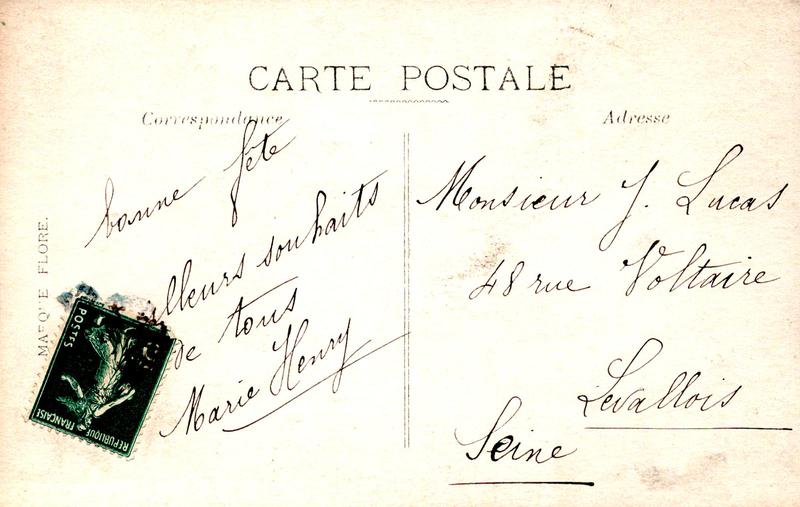 CARTE POSTALE
Correspondance
Adresse
bonne fête
illeurs souhaits
de tous
Marie Henry
Monsieur J. Lucas
48 rue Voltaire
Levallois
Seine
MARQUE FLORE.
POSTES
RÉPUBLIQUE
FRANÇAISE